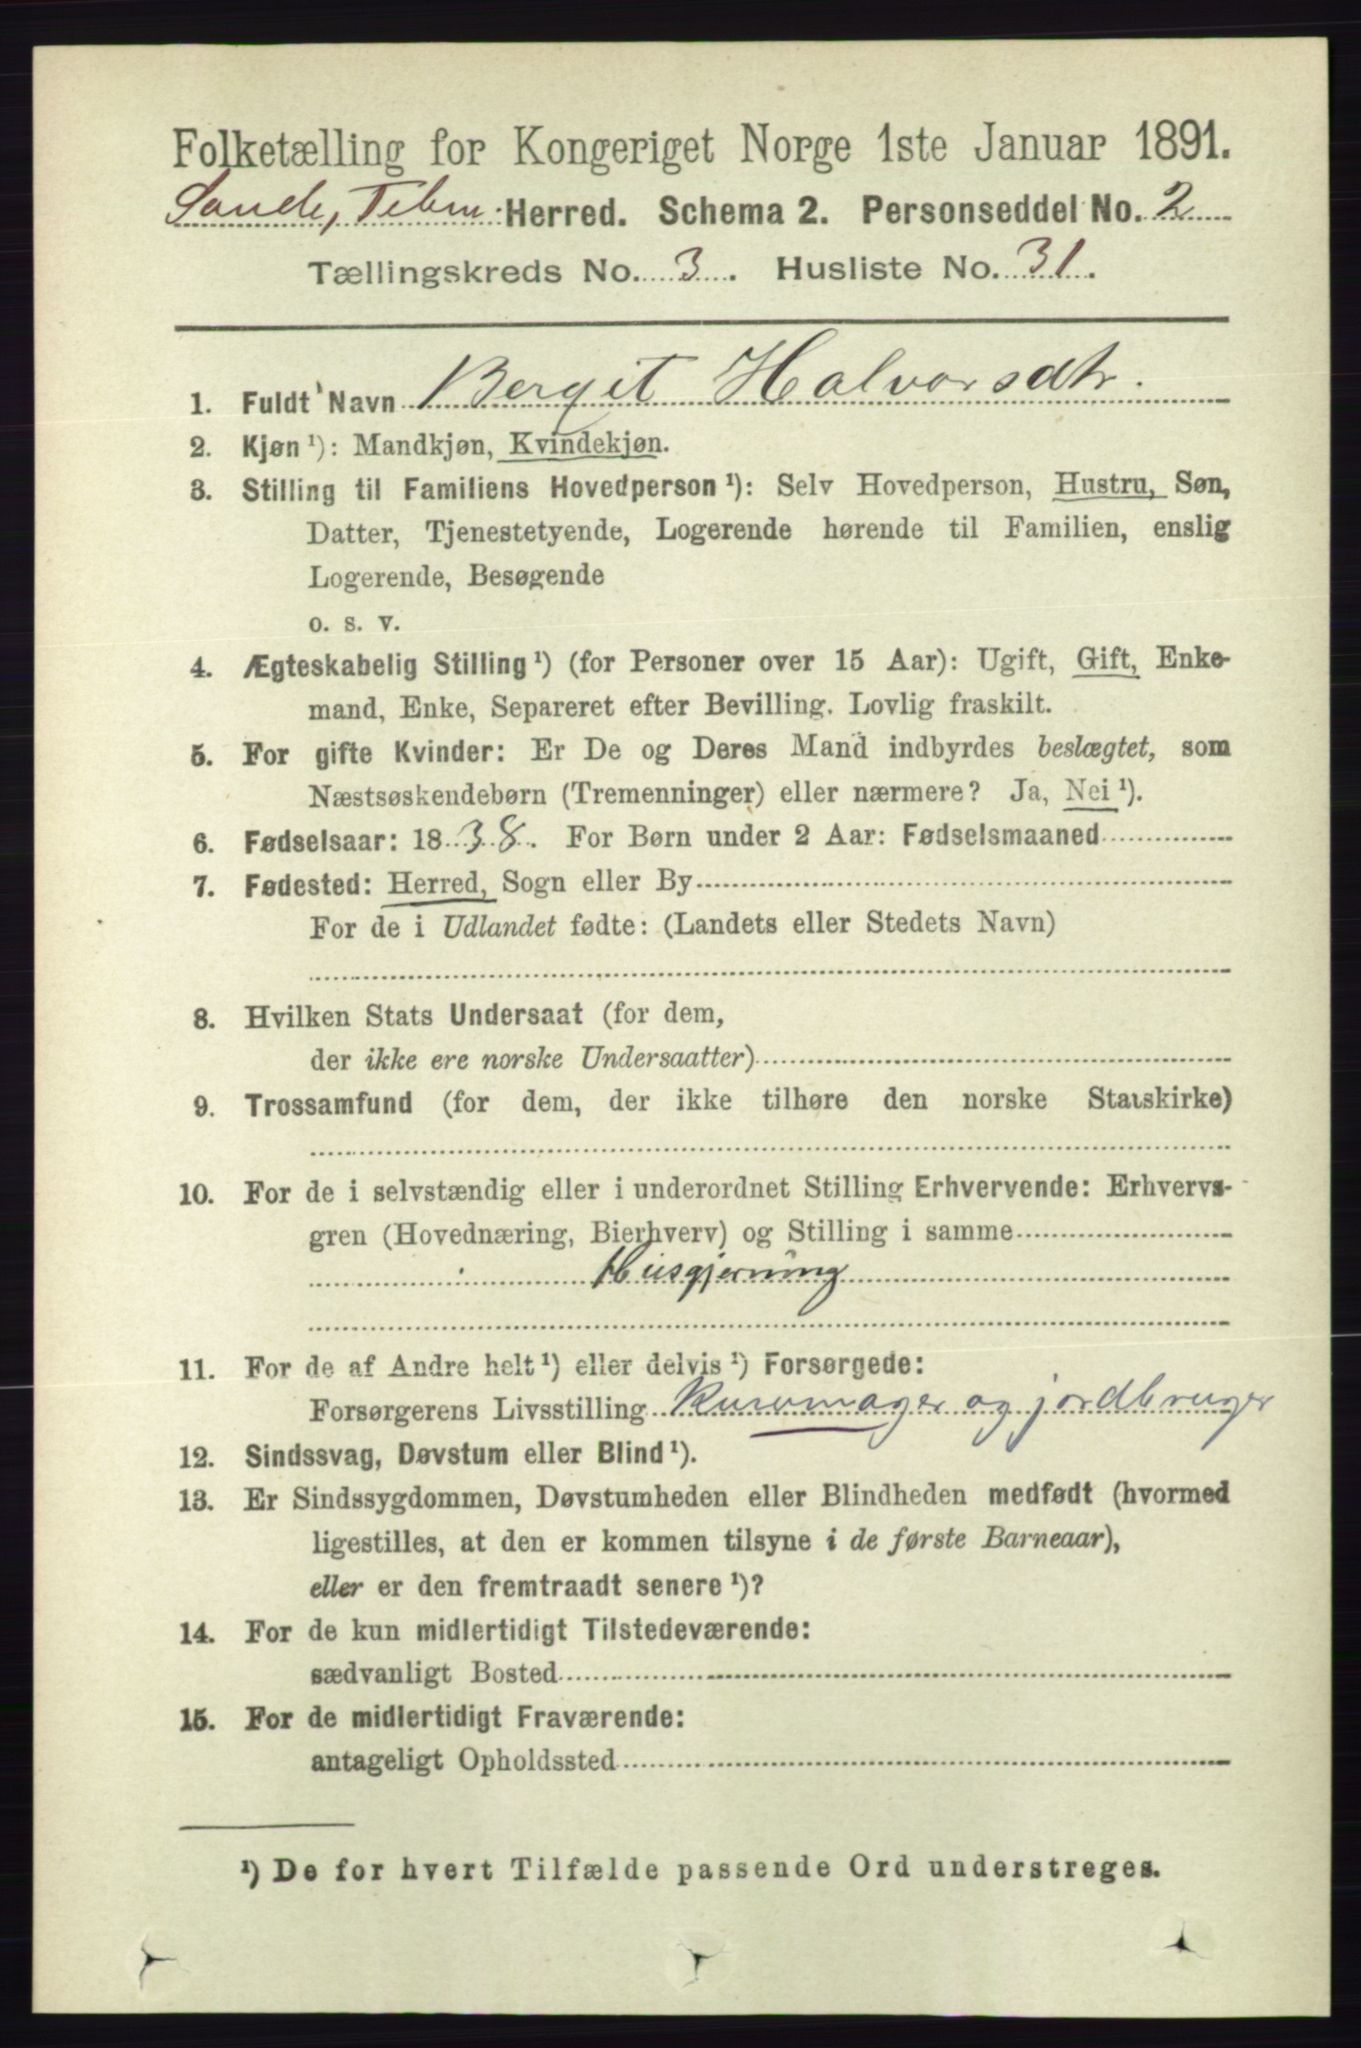 Folketælling for Kongeriget Norge 1ste Januar 1891.
Herred. Schema 2. Personseddel No. 2
Tællingskreds No. 3. Husliste No. 31.
1. Fuldt Navn Bergit Halvorsdtr.
2. Kjøn ¹): Mandkjøn, Kvindekjøn.
3. Stilling til Familiens Hovedperson ¹): Selv Hovedperson, Hustru, Søn,
Datter, Tjenestetyende, Logerende hørende til Familien, enslig
Logerende, Besøgende
o. s. v.
4. Ægteskabelig Stilling ¹) (for Personer over 15 Aar): Ugift, Gift, Enke-
mand, Enke, Separeret efter Bevilling. Lovlig fraskilt.
5. For gifte Kvinder: Er De og Deres Mand indbyrdes beslægtet, som
Næstsøskendebørn (Tremenninger) eller nærmere? Ja, Nei ¹).
6. Fødselsaar: 1838. For Børn under 2 Aar: Fødselsmaaned
7. Fødested: Herred, Sogn eller By
For de i Udlandet fødte: (Landets eller Stedets Navn)
8. Hvilken Stats Undersaat (for dem,
der ikke ere norske Undersaatter)
9. Trossamfund (for dem, der ikke tilhøre den norske Statskirke)
10. For de i selvstændig eller i underordnet Stilling Erhvervende: Erhvervs-
gren (Hovednæring, Bierhverv) og Stilling i samme
Husgjerning
11. For de af Andre helt ¹) eller delvis ¹) Forsørgede:
Forsørgerens Livsstilling Kurvmager og jordbruger
12. Sindssvag, Døvstum eller Blind ¹).
13. Er Sindssygdommen, Døvstumheden eller Blindheden medfødt (hvormed
ligestilles, at den er kommen tilsyne i de første Barneaar),
eller er den fremtraadt senere ¹)?
14. For de kun midlertidigt Tilstedeværende:
sædvanligt Bosted
15. For de midlertidigt Fraværende:
antageligt Opholdssted
¹) De for hvert Tilfælde passende Ord understreges.